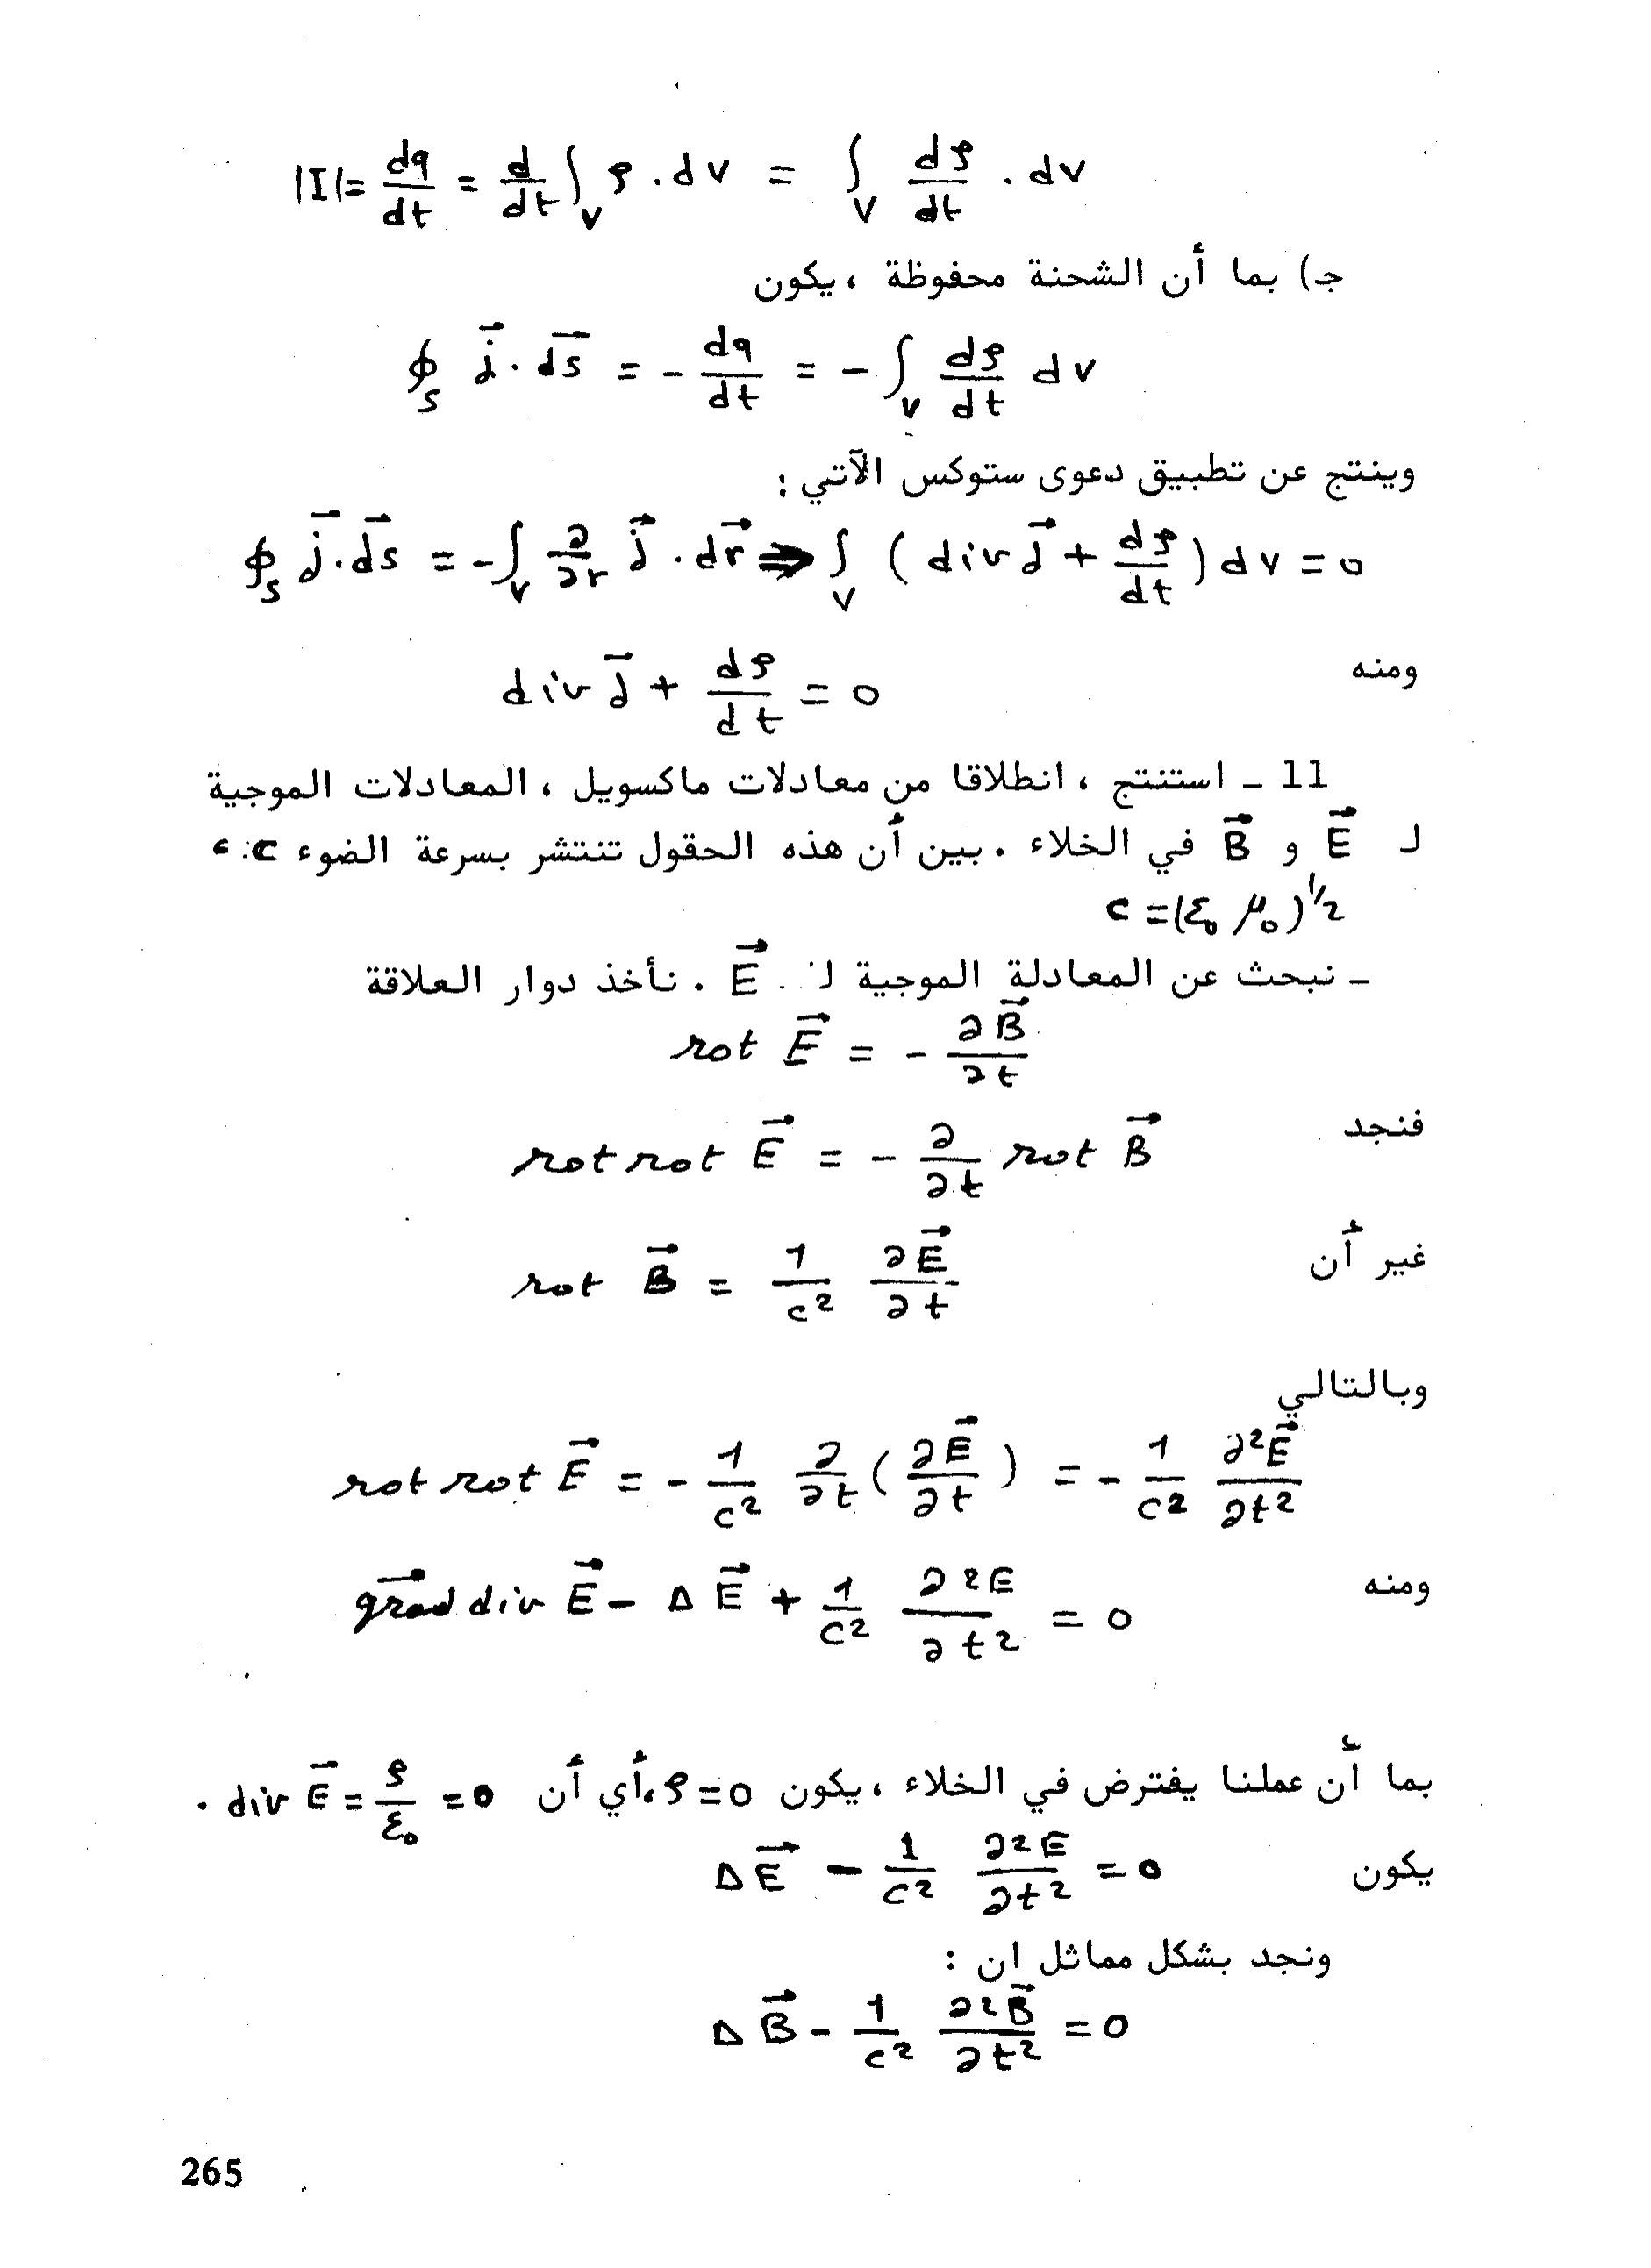 |I| = dq/dt = d/dt ∫_V ρ . dv = ∫_V dρ/dt . dv
جـ) بما أن الشحنة محفوظة ، يكون
∮_S j⃗ . ds⃗ = - dq/dt = - ∫_V dρ/dt dv
وينتج عن تطبيق دعوى ستوكس الآتي :
∮_S j⃗ . ds⃗ = - ∫_V ∂/∂r j⃗ . dr⃗ ⇒ ∫_V ( div j⃗ + dρ/dt ) dv = 0
ومنه div j⃗ + dρ/dt = 0
11 ـ استنتج ، انطلاقا من معادلات ماكسويل ، المعادلات الموجية
لـ E⃗ و B⃗ في الخلاء . بين أن هذه الحقول تنتشر بسرعة الضوء c ،
c = (ε₀ μ₀)^1/2
ـ نبحث عن المعادلة الموجية لـ E⃗ . نأخذ دوار العلاقة
rot E⃗ = - ∂B⃗/∂t
فنجد rot rot E⃗ = - ∂/∂t rot B⃗
غير أن rot B⃗ = 1/c² ∂E⃗/∂t
وبالتالي
rot rot E⃗ = - 1/c² ∂/∂t ( ∂E⃗/∂t ) = - 1/c² ∂²E⃗/∂t²
ومنه grad⃗ div E⃗ - Δ E⃗ + 1/c² ∂²E/∂t² = 0
بما أن عملنا يفترض في الخلاء ، يكون ρ=0 ،أي أن div E⃗ = ρ/ε₀ = 0 .
يكون ΔE⃗ - 1/c² ∂²E/∂t² = 0
ونجد بشكل مماثل ان :
Δ B⃗ - 1/c² ∂²B⃗/∂t² = 0
265